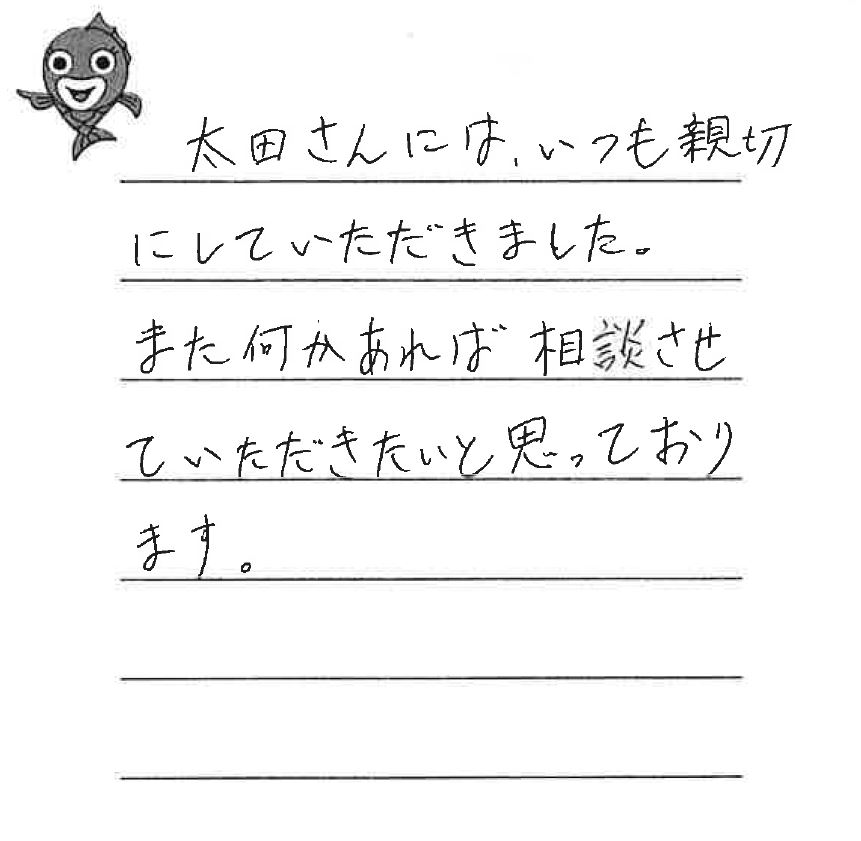 太田さんには、いつも親切
にしていただきました。
また何かあれば相談させ
ていただきたいと思っており
ます。